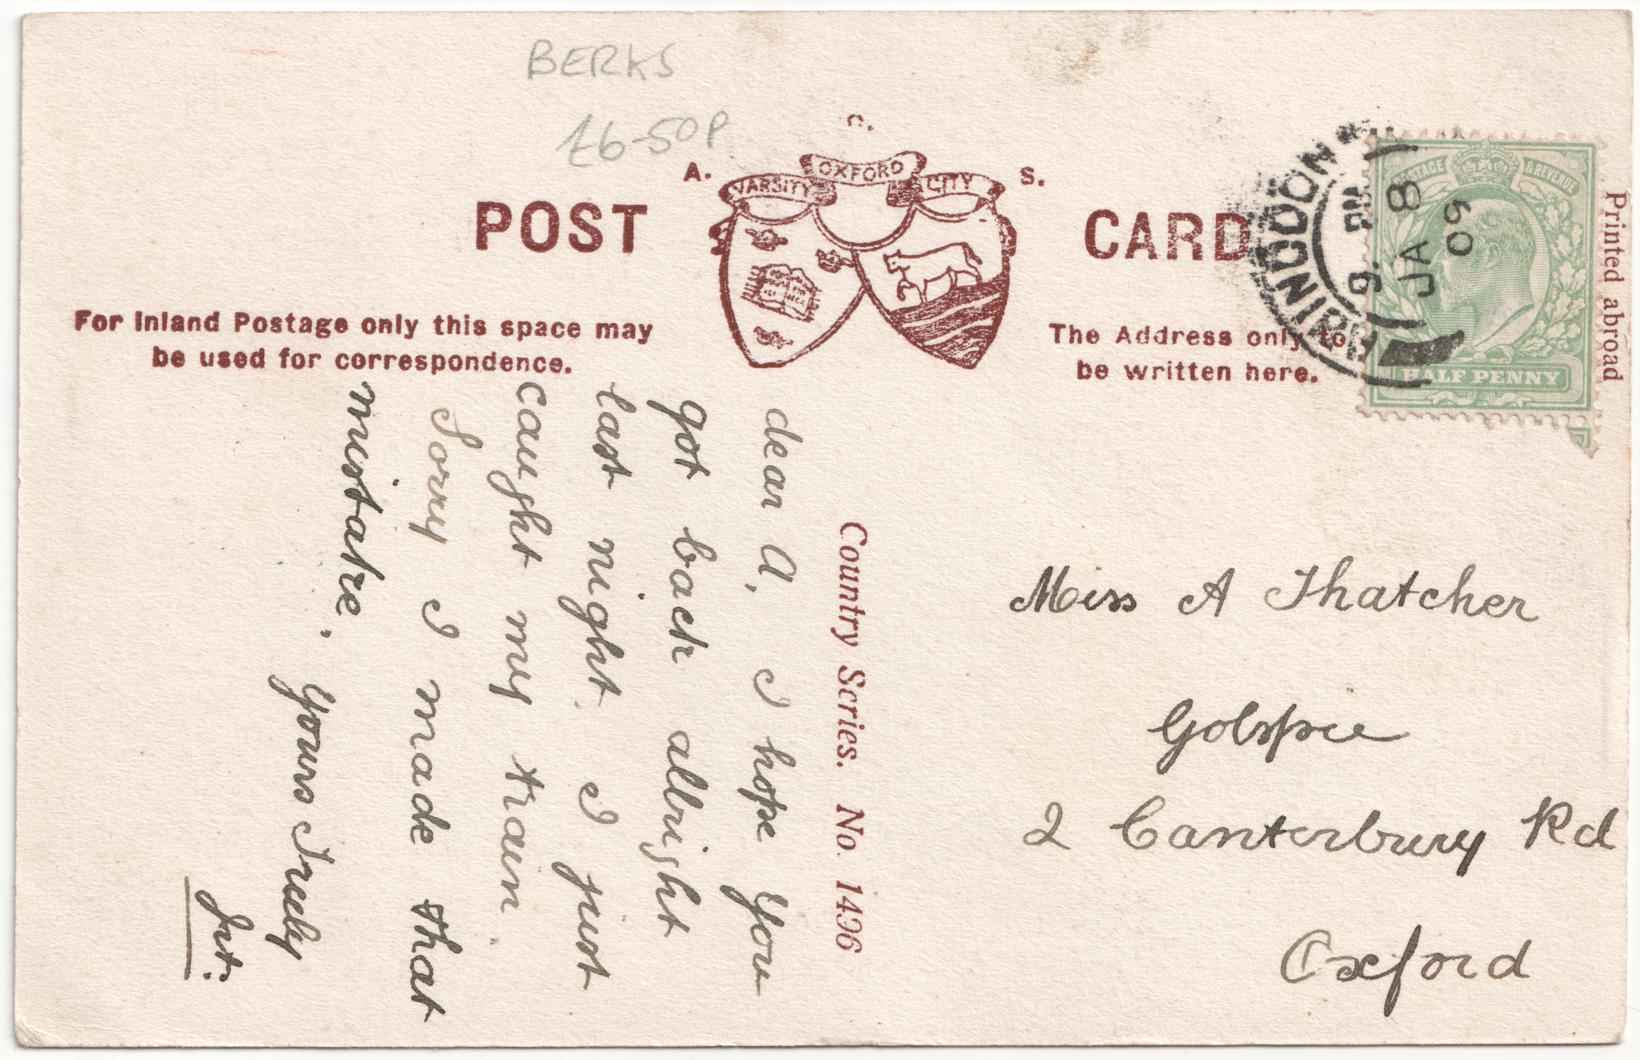 BERKS
£6-50P
A. C. S.
VARSITY OXFORD CITY
POST CARD
For Inland Postage only this space may
be used for correspondence.
The Address only to
be written here.
ABINGDON
9. PM
JA 8
09
POSTAGE & REVENUE
HALF PENNY
Printed abroad
Country Series. No. 1496
dear A, I hope you
got back allright
last night. I just
caught my train.
Sorry I made that
mistake.
Yours Truly
Miss A Thatcher
Golspie
2 Canterbury Rd
Oxford